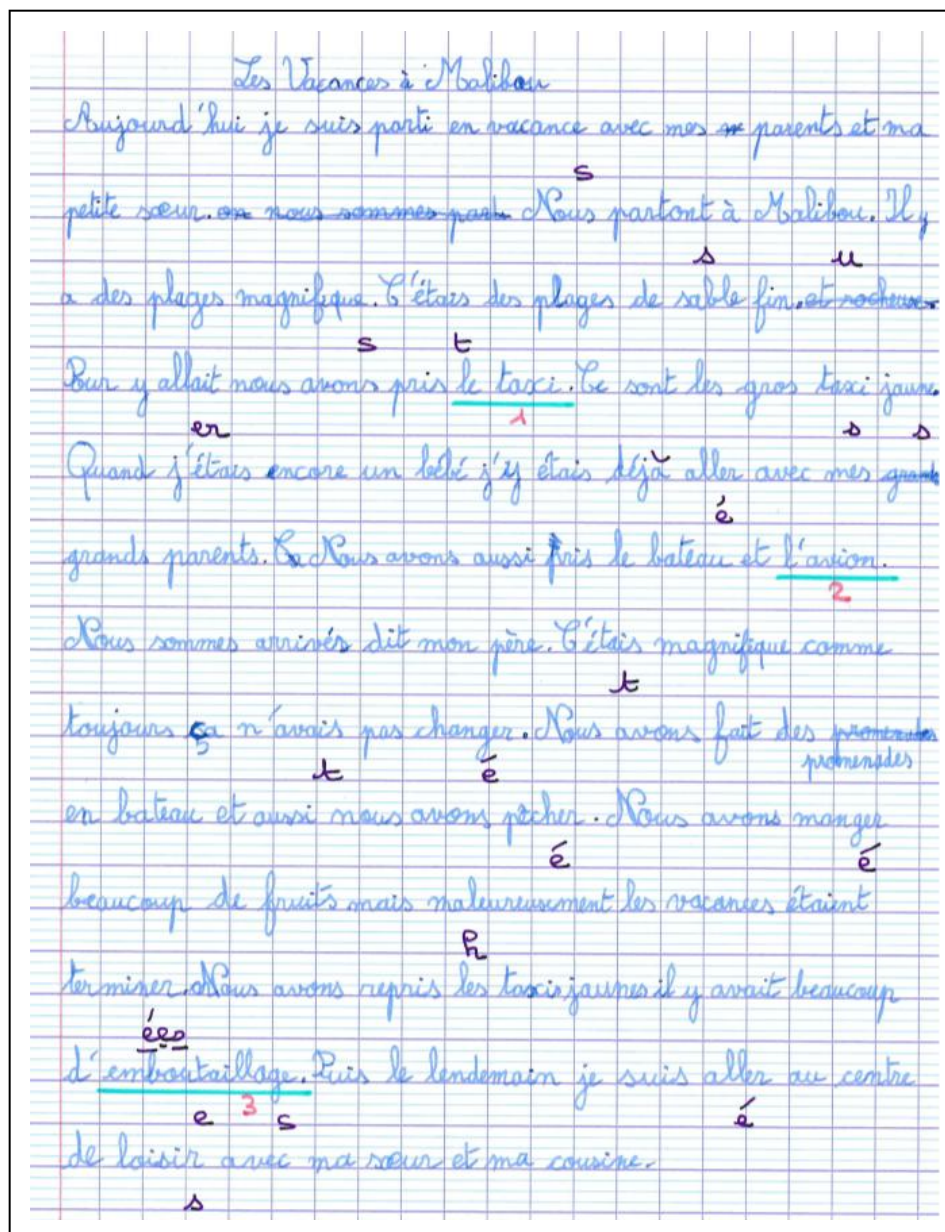 Les Vacances à Malibou
Aujourd'hui je suis parti en vacance avec mes parents et ma
s
petite sœur. on nous sommes part Nous partont à Malibou. Il y
s u
a des plages magnifique. C'étais des plages de sable fin. et rocheuse.
s t
Pour y allait nous avons pris le taxi. Ce sont les gros taxi jaune.
er 1 s s
Quand j'étais encore un bébé j'y étais déjà aller avec mes grands
é
grands parents. Ce Nous avons aussi pris le bateau et l'avion.
2
Nous sommes arrivés dit mon père. C'étais magnifique comme
t
toujours ça n'avais pas changer. Nous avons fait des promenades
t é promenades
en bateau et aussi nous avons pêcher. Nous avons manger
é é
beaucoup de fruits mais maleureusement les vacances étaient
h
terminer. Nous avons repris les taxis jaunes il y avait beaucoup
ées
d'emboutaillage. Puis le lendemain je suis aller au centre
e 3 s é
de loisir avec ma sœur et ma cousine.
s